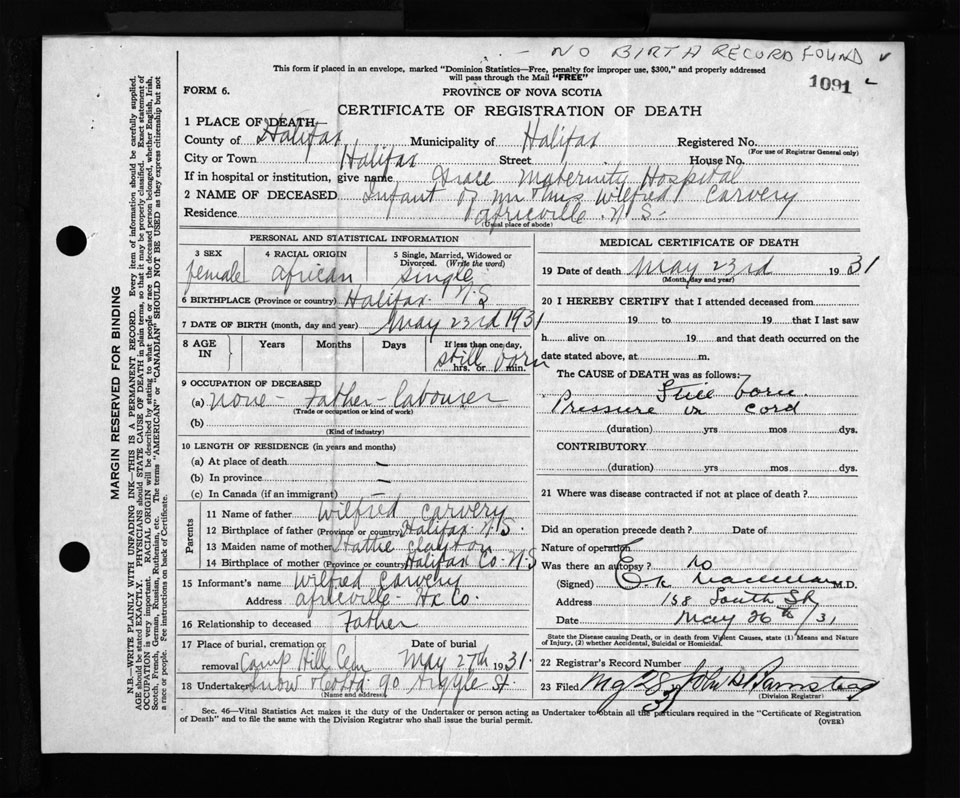 - NO BIRTH RECORD FOUND
This form if placed in an envelope, marked "Dominion Statistics—Free, penalty for improper use, $300," and properly addressed
will pass through the Mail "FREE"
1091
FORM 6.
PROVINCE OF NOVA SCOTIA
CERTIFICATE OF REGISTRATION OF DEATH
1 PLACE OF DEATH
County of Halifax Municipality of Halifax Registered No.
(For use of Registrar General only)
City or Town Halifax Street House No.
If in hospital or institution, give name Grace Maternity Hospital
2 NAME OF DECEASED Infant of Mr & Mrs Wilfred Carvery
Residence Africville N.S.
(Usual place of abode)
MARGIN RESERVED FOR BINDING
N.B.—WRITE PLAINLY WITH UNFADING INK—THIS IS A PERMANENT RECORD. Every item of information should be carefully supplied.
AGE should be stated EXACTLY. PHYSICIANS should STATE CAUSE OF DEATH in plain terms, so that it may be properly classified. Exact statement of
OCCUPATION is very important. RACIAL ORIGIN will be described by stating to what people or race the deceased person belonged, whether English, Irish,
Scotch, French, German, Russian, Ruthenian, etc. The terms "AMERICAN" or "CANADIAN" SHOULD NOT BE USED as they express citizenship but not
a race or people. See instructions on back of Certificate.
PERSONAL AND STATISTICAL INFORMATION
3 SEX
female
4 RACIAL ORIGIN
African
5 Single, Married, Widowed or
Divorced. (Write the word)
Single
6 BIRTHPLACE (Province or country) Halifax N.S
7 DATE OF BIRTH (month, day and year) May 23rd 1931
8 AGE IN
Years Months Days
If less than one day,
hrs. or min.
still born
9 OCCUPATION OF DECEASED
(a) none - Father - Labourer
(Trade or occupation or kind of work)
(b)
(Kind of industry)
10 LENGTH OF RESIDENCE (in years and months)
(a) At place of death -
(b) In province -
(c) In Canada (if an immigrant)
Parents
11 Name of father Wilfred Carvery
12 Birthplace of father (Province or country) Halifax N.S.
13 Maiden name of mother Hattie Clayton
14 Birthplace of mother (Province or country) Halifax Co. N.S
15 Informant's name Wilfred Carvery
Address Africville Hx Co.
16 Relationship to deceased Father
17 Place of burial, cremation or
removal Camp Hill Cem
Date of burial
May 27th 1931.
18 Undertaker Snow & Co Ltd. 90 Argyle St.
Name and address
MEDICAL CERTIFICATE OF DEATH
19 Date of death May 23rd 1931
(Month, day and year)
20 I HEREBY CERTIFY that I attended deceased from
19 to 19 that I last saw
h alive on 19 and that death occurred on the
date stated above, at m.
The CAUSE of DEATH was as follows:
Still born
Pressure on cord
(duration) yrs mos dys.
CONTRIBUTORY
(duration) yrs mos dys.
21 Where was disease contracted if not at place of death?
Did an operation precede death? Date of
Nature of operation
Was there an autopsy? no
(Signed) M.D.
Address 158 South St
Date May 26th /31
State the Disease causing Death, or in death from Violent Causes, state (1) Means and Nature
of Injury, (2) whether Accidental, Suicidal or Homicidal.
22 Registrar's Record Number
23 Filed
(Division Registrar)
Sec. 46—Vital Statistics Act makes it the duty of the Undertaker or person acting as Undertaker to obtain all the particulars required in the "Certificate of Registration
of Death" and to file the same with the Division Registrar who shall issue the burial permit.
(OVER)